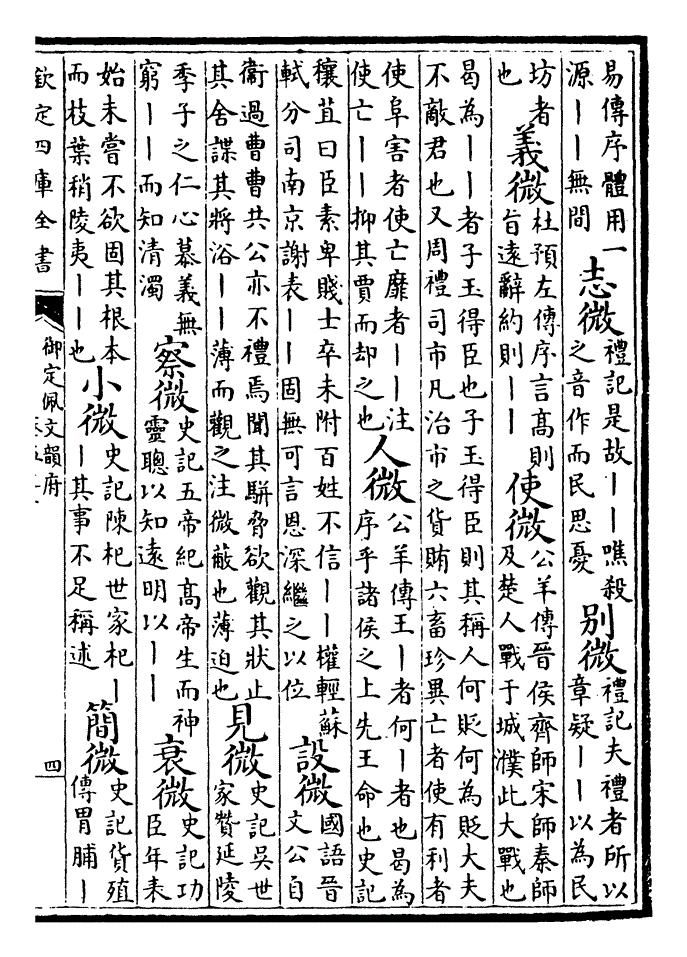 易傳序體用一
源丨丨無間
志微
禮記是故丨丨噍殺
之音作而民思憂
别微
禮記夫禮者所以
章疑丨丨以為民
坊者
也
義微
杜預左傳序言高則
旨遠辭約則丨丨
使微
公羊傳晉侯齊師宋師秦師
及楚人戰于城濮此大戰也
曷為丨丨者子玉得臣也子玉得臣則其稱人何貶何為貶大夫
不敵君也又周禮司市凡治市之貨賄六畜珍異亡者使有利者
使阜害者使亡靡者丨丨注
使亡丨丨抑其賈而却之也
人微
公羊傳王丨者何丨者也曷為
序乎諸侯之上先王命也史記
穰苴曰臣素卑賤士卒未附百姓不信丨丨權輕蘇
軾分司南京謝表丨丨固無可言恩深繼之以位
設微
國語晉
文公自
衛過曹曹共公亦不禮焉聞其駢脅欲觀其狀止
其舍諜其將浴丨丨薄而觀之注微蔽也薄迫也
見微
史記吳世
家贊延陵
季子之仁心慕義無
窮丨丨而知清濁
察微
史記五帝紀高帝生而神
靈聰以知遠明以丨丨
衰微
史記功
臣年表
始未嘗不欲固其根本
而枝葉稍陵夷丨丨也
小微
史記陳杞世家杞丨
丨其事不足稱述
簡微
史記貨殖
傳胃脯丨
欽定四庫全書
御定佩文韻府
四